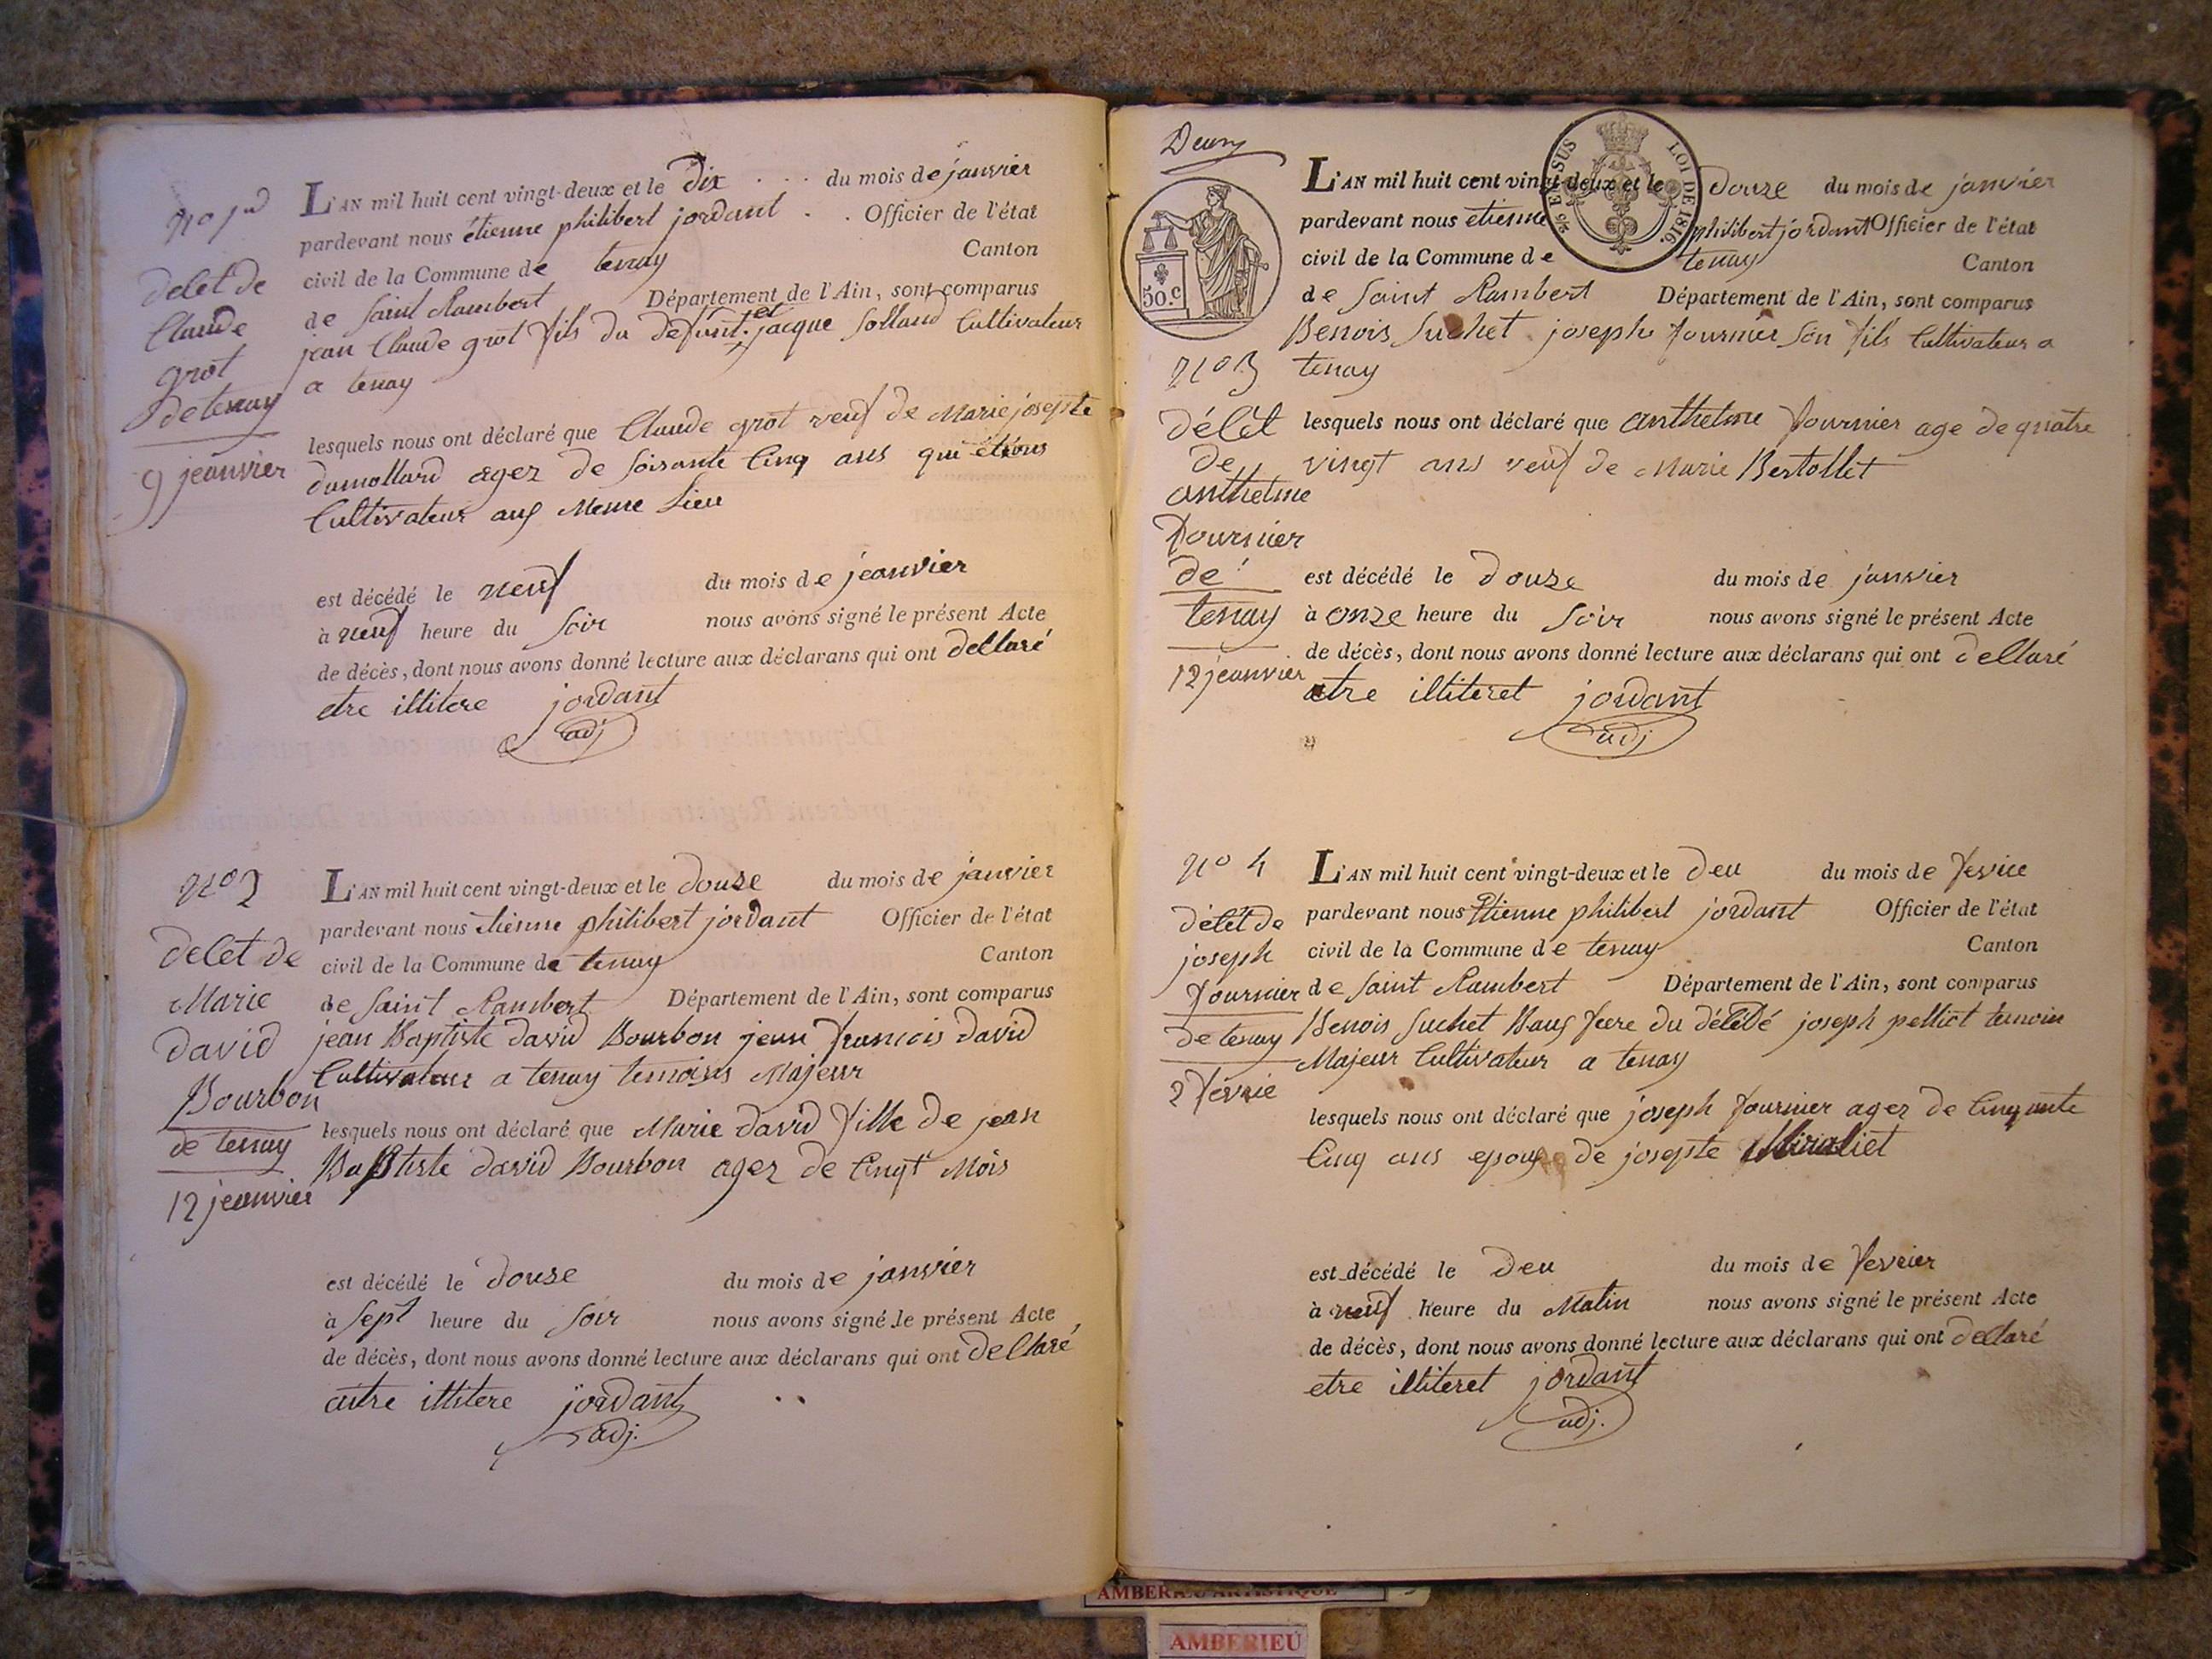 no 1er
delet de
Claude
grot
de tenay
9 jeanvier
L'AN mil huit cent vingt-deux et le dix . . . du mois de janvier
pardevant nous étienne philibert jordant . . Officier de l'état
civil de la Commune de tenay Canton
de Saint Rambert Département de l'Ain, sont comparus
jean Claude grot fils du défunt. et jacque Solland Cultivateur
a tenay
lesquels nous ont déclaré que Claude grot veuf de Marie josepte
dumollard agez de soisante Cinq ans qui étions
Cultivateur auf Meme Lieu
est décédé le neuf du mois de jeanvier
à neuf heure du soir nous avons signé le présent Acte
de décès, dont nous avons donné lecture aux déclarans qui ont dellaré
etre illitere jordant
adj
no 2
delet de
Marie
david
Bourbon
de tenay
12 jeanvier
L'AN mil huit cent vingt-deux et le douse du mois de janvier
pardevant nous étienne philibert jordant Officier de l'état
civil de la Commune de tenay Canton
de Saint Rambert Département de l'Ain, sont comparus
jean Baptiste david Bourbon jean francois david
Cultivateur a tenay temoins Majeur
lesquels nous ont déclaré que Marie david fille de jean
Baptiste david Bourbon agez de Cingt Mois
est décédé le douse du mois de janvier
à sept heure du soir nous avons signé le présent Acte
de décès, dont nous avons donné lecture aux déclarans qui ont dellaré
aitre illitere jordant
adj.
Deux
E SUS LOI DE 1816.
50.c
no 3
délét
de
anthelme
fournier
de
tenay
12 jeanvier
L'AN mil huit cent vingt-deux et le douze du mois de janvier
pardevant nous etienne philibert jordant Officier de l'état
civil de la Commune de tenay Canton
de Saint Rambert Département de l'Ain, sont comparus
Benois Suchet joseph fournier son fils Cultivateur a
tenay
lesquels nous ont déclaré que anthelme fournier age de quatre
vingt ans veuf de Marie Bertollet
est décédé le douze du mois de janvier
à onze heure du soir nous avons signé le présent Acte
de décès, dont nous avons donné lecture aux déclarans qui ont dellaré
etre illiteret jordant
adj
no 4
délét de
joseph
fournier
de tenay
2 fevrie
L'AN mil huit cent vingt-deux et le deu du mois de fevrie
pardevant nous Etienne philibert jordant Officier de l'état
civil de la Commune de tenay Canton
de Saint Rambert Département de l'Ain, sont comparus
Benois Suchet Bauf frere du délédé joseph pelliot temoin
Majeur Cultivateur a tenay
lesquels nous ont déclaré que joseph fournier agez de Cinquante
Cinq ans epouf de josepte
est décédé le deu du mois de fevrier
à neuf heure du Matin nous avons signé le présent Acte
de décès, dont nous avons donné lecture aux déclarans qui ont dellaré
etre illiteret jordant
adj.
AMBERIEU ARTISTIQUE
AMBERIEU